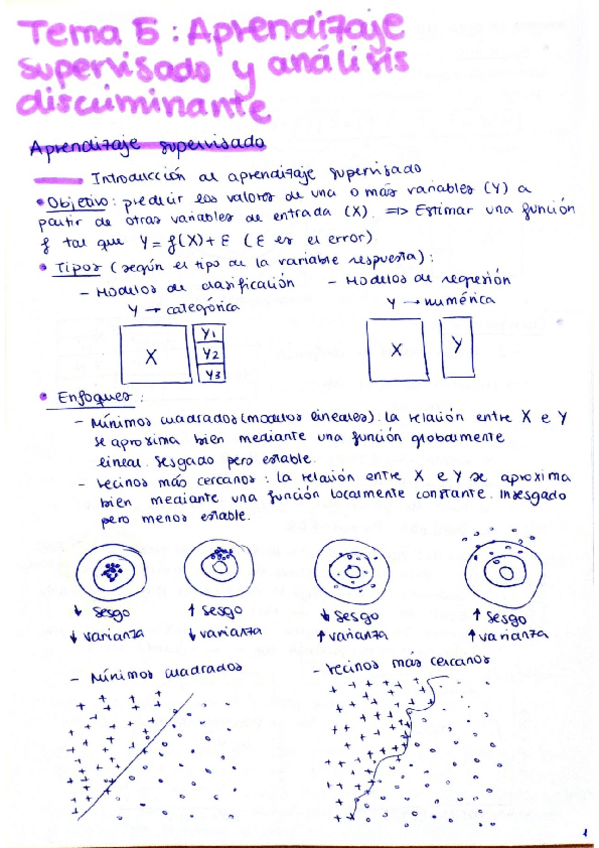 Tema 5: Aprendizaje
supervisado y análisis
discriminante
Aprendizaje supervisado
Introducción al aprendizaje supervisado
• Objetivo: predecir los valores de una o más variables (Y) a
partir de otras variables de entrada (X). => Estimar una función
f tal que Y = f(X) + ε (ε es el error)
• Tipos (según el tipo de la variable respuesta):
- Modelos de clasificación - Modelos de regresión
Y → categórica Y → numérica
X Y1 Y2 Y3 X Y
• Enfoques:
- Mínimos cuadrados (modelos lineales). la relación entre X e Y
se aproxima bien mediante una función globalmente
lineal. Sesgado pero estable.
- Vecinos más cercanos: la relación entre X e Y se aproxima
bien mediante una función localmente constante. Insesgado
pero menos estable.
↓ sesgo ↑ sesgo ↓ sesgo ↑ sesgo
↓ varianza ↓ varianza ↑ varianza ↑ varianza
- Mínimos cuadrados - Vecinos más cercanos
1